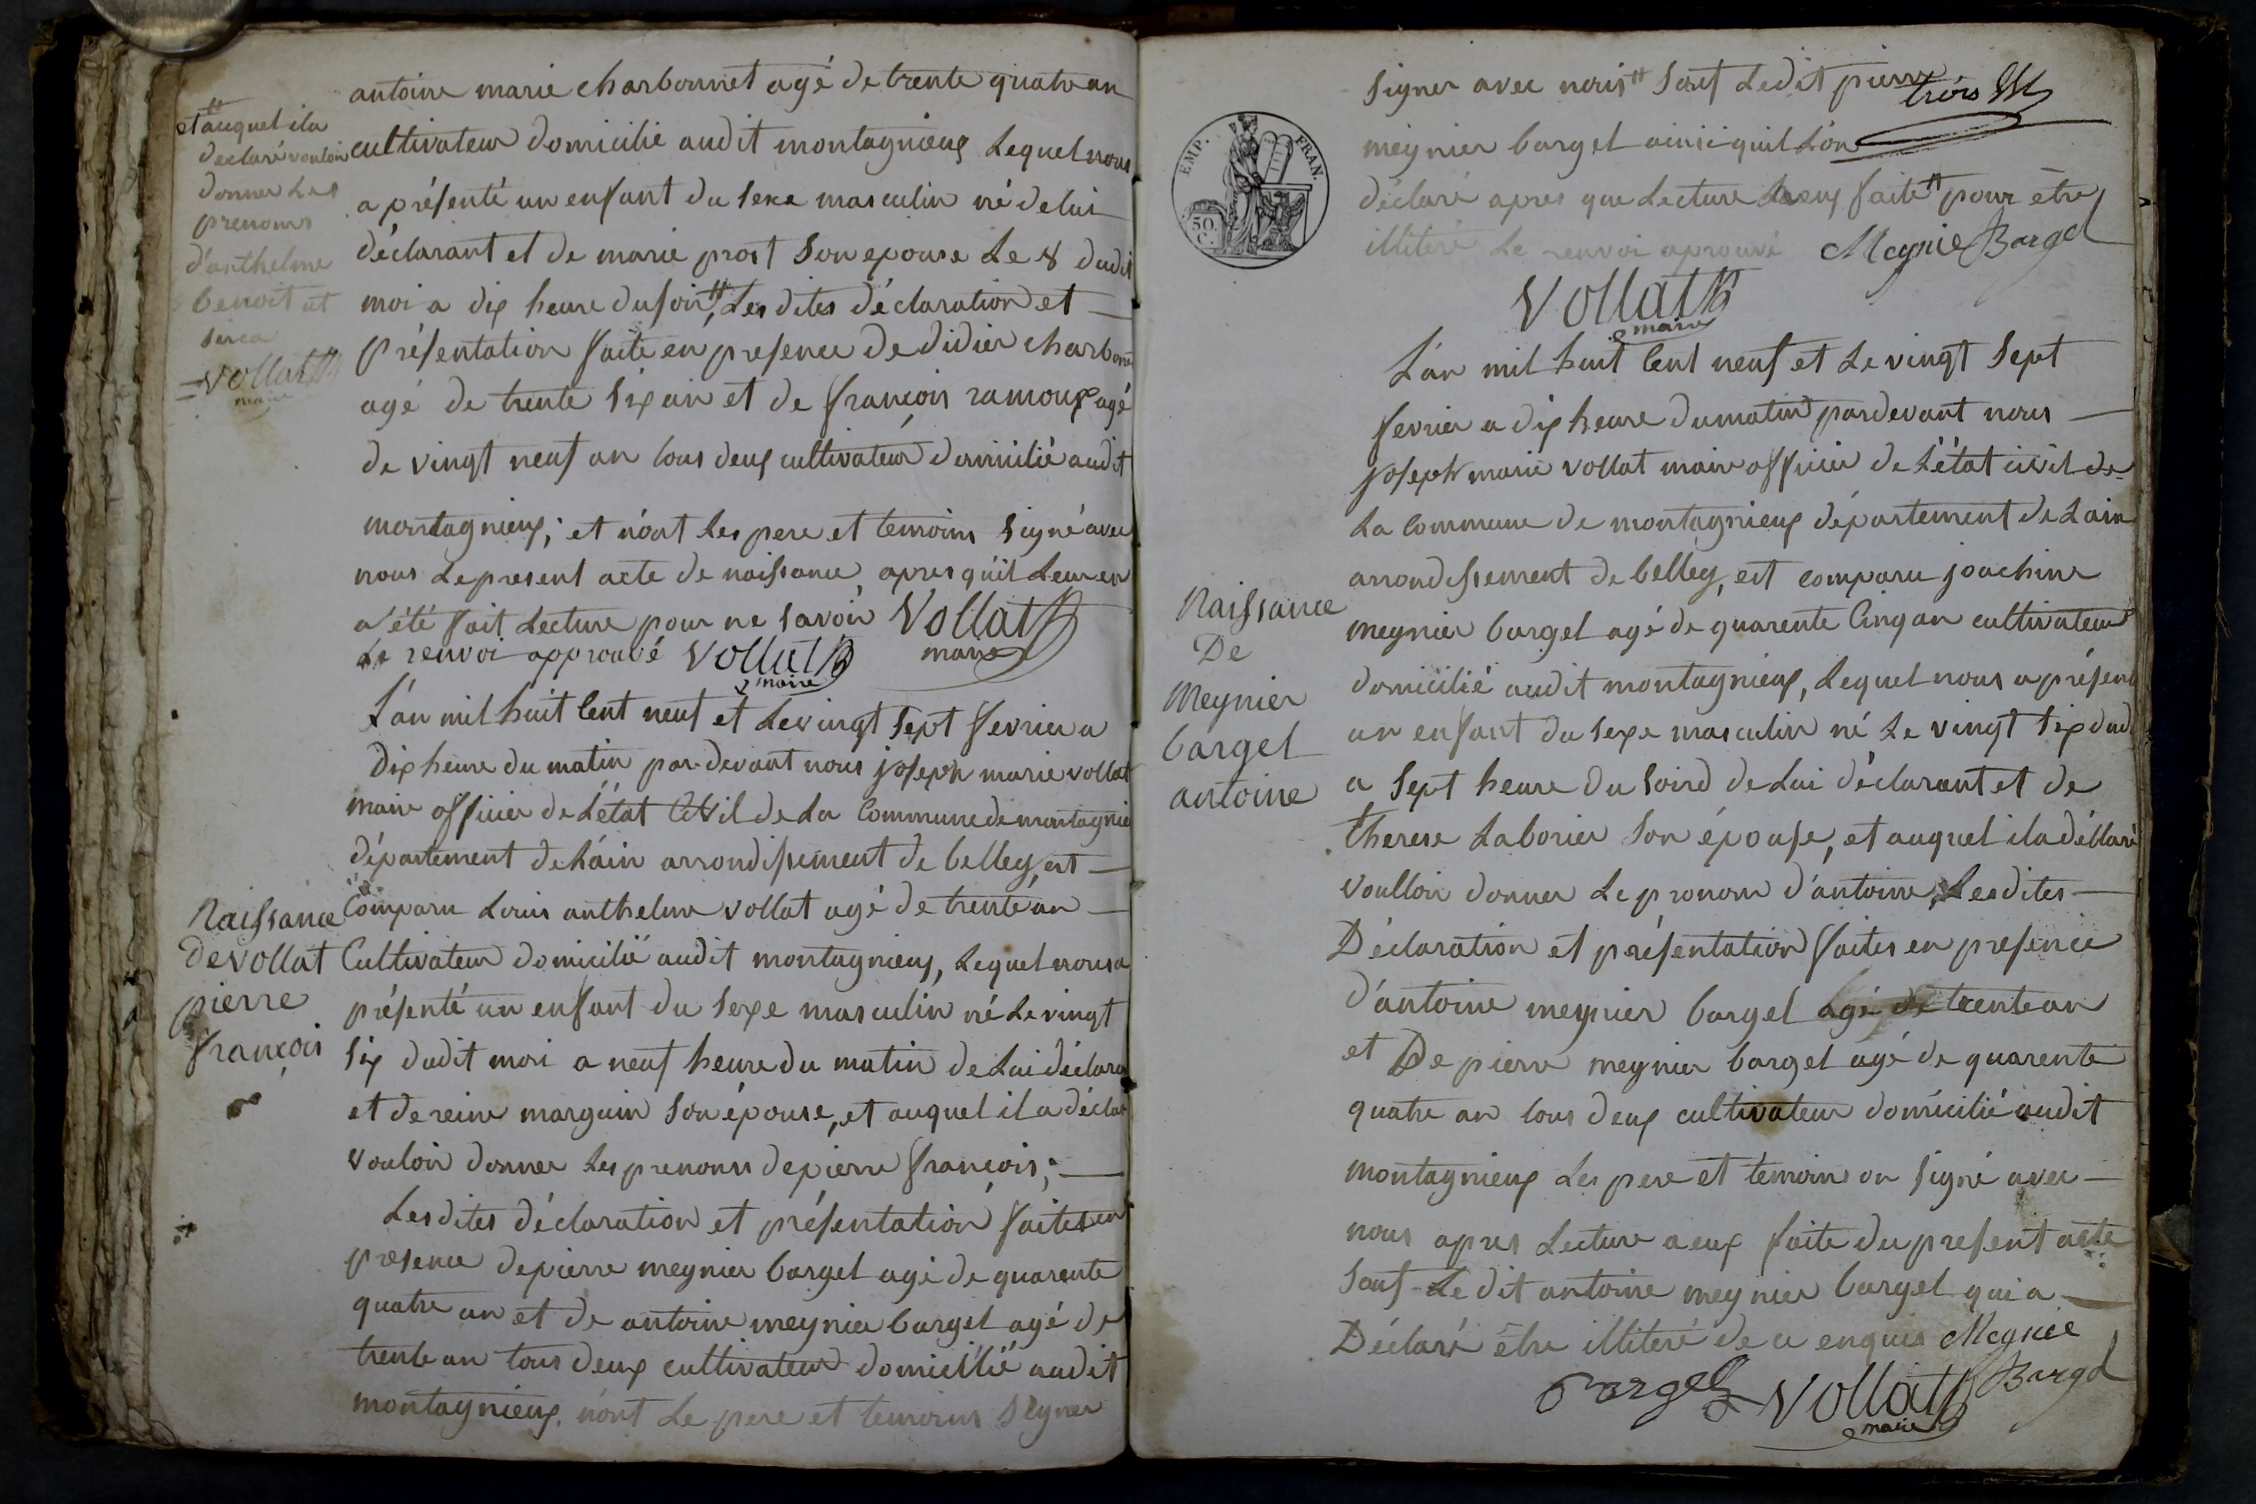 antoine marie charbonnet agé de trente quatre an
cultivateur domicilié audit montagnieux Lequel nous
a présenté un enfant du sexe masculin né de lui
déclarant et de marie prost son epouse Le 8 dudit
moi a dix heure du soir, Les dites déclaration et
présentation faite en presence de didier charbonn
agé de trente six an et de françois ramoux agé
de vingt neuf an tous deux cultivateur domicilié audit
montagnieux; et n'ont Les pere et temoins signé avec
nous Le present acte de naissance apres qu'il Leur en
a été fait Lecture pour ne savoir Vollat
maire
Le renvoi approuvé Vollat
maire
et auquel il a
declaré vouloir
donner Les
prenoms
d'anthelme
benoit et
Vollat
maire
L'an mil huit Cent neuf et Le vingt sept fevrier a
dix heure du matin par devant nous joseph marie vollat
maire officier de L'état Civil de La Commune de montagnie
département de L'ain arrondissement de belley, est
Comparu Louis anthelme vollat agé de trente an
Cultivateur domicilié audit montagnieux, Lequel nous a
présenté un enfant du sexe masculin né Le vingt
six dudit moi a neuf heure du matin de Lui déclara
et de reine marguin son épouse, et auquel il a déclar
vouloir donner Les prenoms de pierre françois;
Les dites déclaration et présentation faites en
presence de pierre meynier bargel agé de quarente
quatre an et de antoine meynier bargel agé de
trente an tous deux cultivateur domicilié audit
montagnieux. n'ont Le pere et temoins signer
Naissance
de vollat
pierre
françois
trois
signer avec nous sauf Ledit pierre
meynier bargel ainsi quil L'on
déclaré apres que Lecture faite pour être
illiteré Le renvoi aprouvé Meynie Bargel
Vollat
maire
EMP. FRAN.
50.
C.
L'an mil huit Cent neuf et Le vingt sept
fevrier a dix heure du matin pardevant nous
joseph marie vollat maire officier de L'état civil de
La Commune de montagnieux département de Lain
arrondissement de belley, est comparu joachine
meynier bargel agé de quarente Cinq an cultivateur
domicilié audit montagnieux, Lequel nous a présen
un enfant du sexe masculin né Le vingt six dud
a sept heure du soird de Lui déclarant et de
therese Laborier son épouse, et auquel il a déclaré
voulloir donner Le pronom d'antoine, Les dites
Déclaration et présentation faites en presence
d'antoine meynier bargel agé de trente an
et De pierre meynier bargel agé de quarente
quatre an tous deux cultivateur domicilié audit
montagnieux Les pere et temoin on signé avec
nous apres Lecture a eux faite du present acte
sauf Le dit antoine meynier bargel qui a
Déclaré être illiteré de ce enquis Meynie
Bargel
Bargel Vollat
maire
Naissance
De
Meynier
bargel
antoine